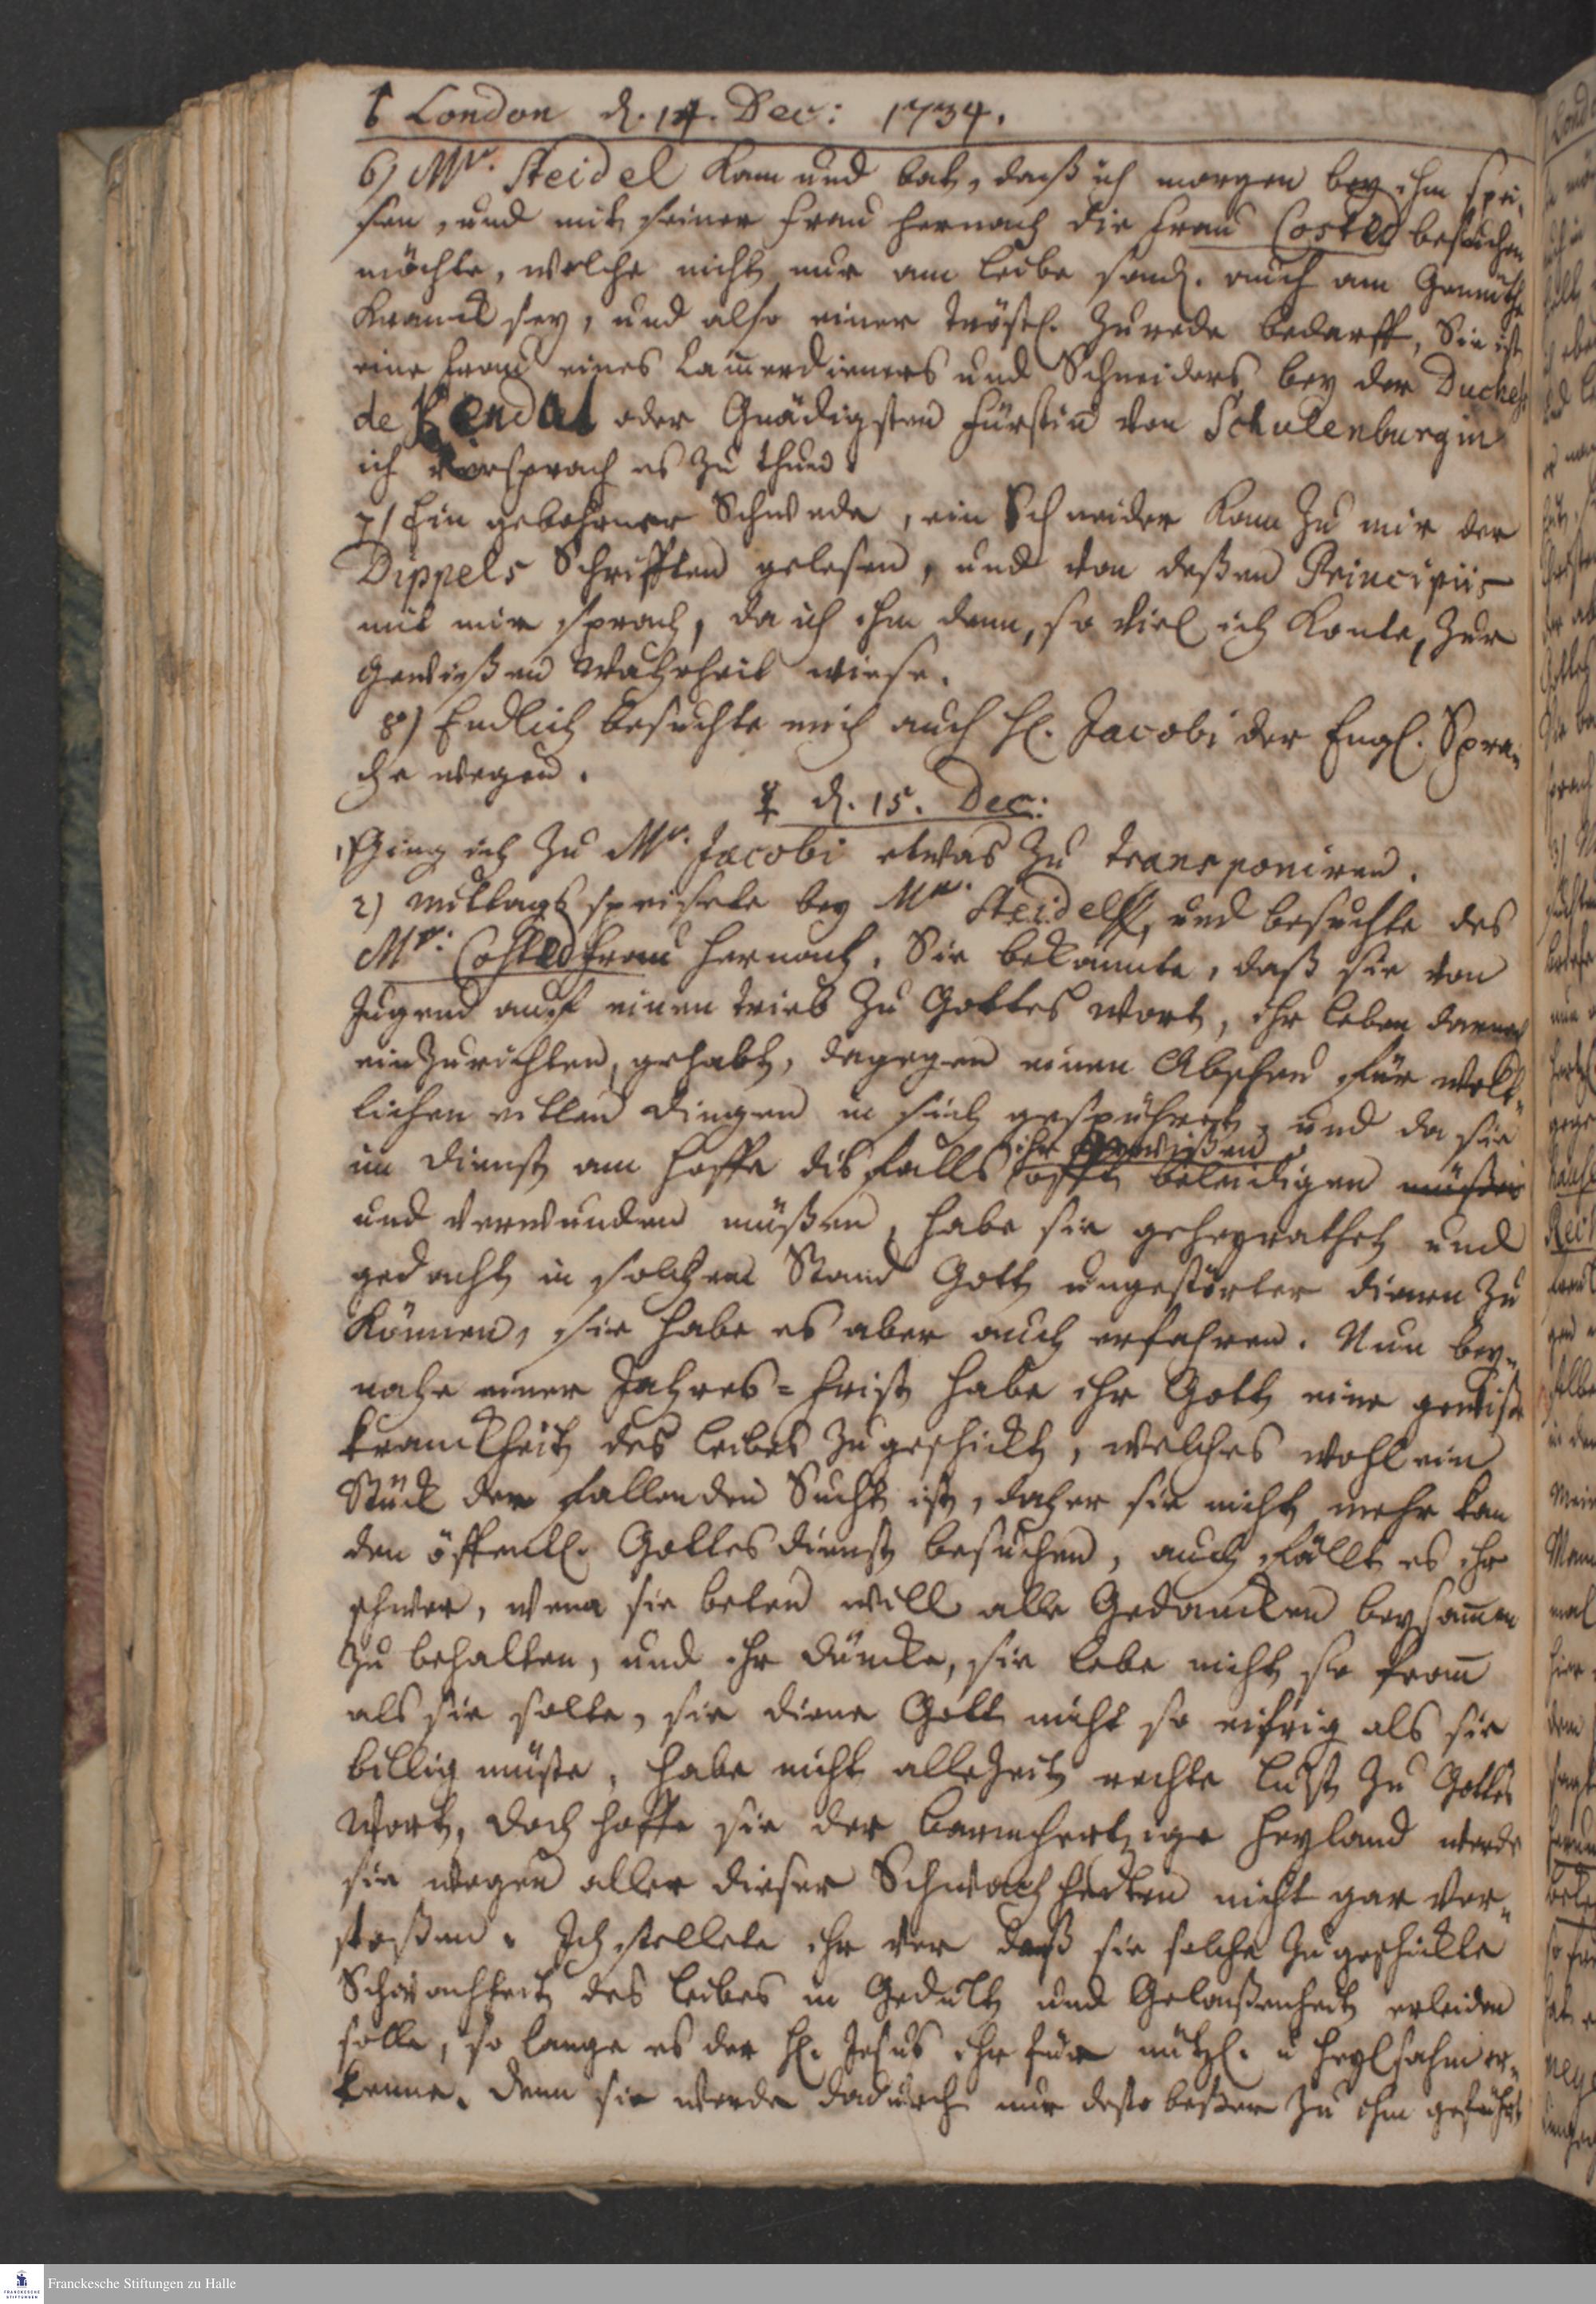 London d. 14. Dec: 1734.
6) Mr. Steidel kam und bat, daß ich morgen bey ihm spei-
sen, und mit seiner Frau hernach die Frau Costed besuchen
möchte, welche nicht nur am Leibe sond. auch am Gemüthe
kranck sey, und also einer tröstl. Zurede bedarff, Sie ist
eine Frau eines Cam̅erdieners und Schneiders bey der Duchess
de Kendal oder Gnädigsten Fürstin von Schulenburgin
ich versprach es zu thun.
7) Ein gebohrner Schwede, ein Schneider kam zu mir der
Dippels Schrifften gelesen, und von deßen Principiis
mit mir sprach, da ich ihm denn, so viel ich konte, zur
gewißen Wahrheit wiese.
8) Endlich besuchte mich auch H. Jacobi der Engl. Spra-
che wegen.
☿ d. 15. Dec:
1) Ging ich zu Mr. Jacobi etwas zu transponiren.
2) Mittags speisete bey Mr. Steidell, und besuchte des
Mr: Costed Frau hernach. Sie bekannte, daß sie von
Jugend auf einen Trieb zu Gottes Wort, ihr Leben darnach
einzurichten, gehabt, dagegen einen Abscheu für welt-
lichen eitlen Dingen in sich gespühret, und da sie
ihr Gewißen
im Dienst am Hoffe disfalls offt beleidigen müßen
und verwunden müßen, habe sie geheyrathet und
gedacht in solchem Stand Gott ungestörter dienen zu
können, sie habe es aber auch erfahren. Nun bey-
nahe einer Jahres-Frist habe ihr Gott eine gewiße
Kranckheit des Leibes zugeschickt, welches wohl ein
Stück der fallenden Sucht ist, daher sie nicht mehr kan
den öffentl. Gottesdienst besuchen, auch fällt es ihr
schwer, wenn sie beten will alle Gedancken beysam̅en
zu behalten, und ihr düncke, sie lebe nicht so from̅
als sie solte, sie diene Gott nicht so eifrig als sie
billig müste, habe nicht allezeit rechte Lust zu Gottes
Wort, doch hoffe sie der barmhertzige Heyland werde
sie wegen aller dieser Schwachheiten nicht gar ver-
stoßen. Ich stellete ihr vor daß sie solche zugeschickte
Schwachheit des Leibes in Gedult und Gelaßenheit erleiden
solle, so lange es der H. Jesus ihr für nützl. u heylsahm er-
kenne. Denn sie werde dadurch nur desto beßer zu ihm geführt
Franckesche Stiftungen zu Halle